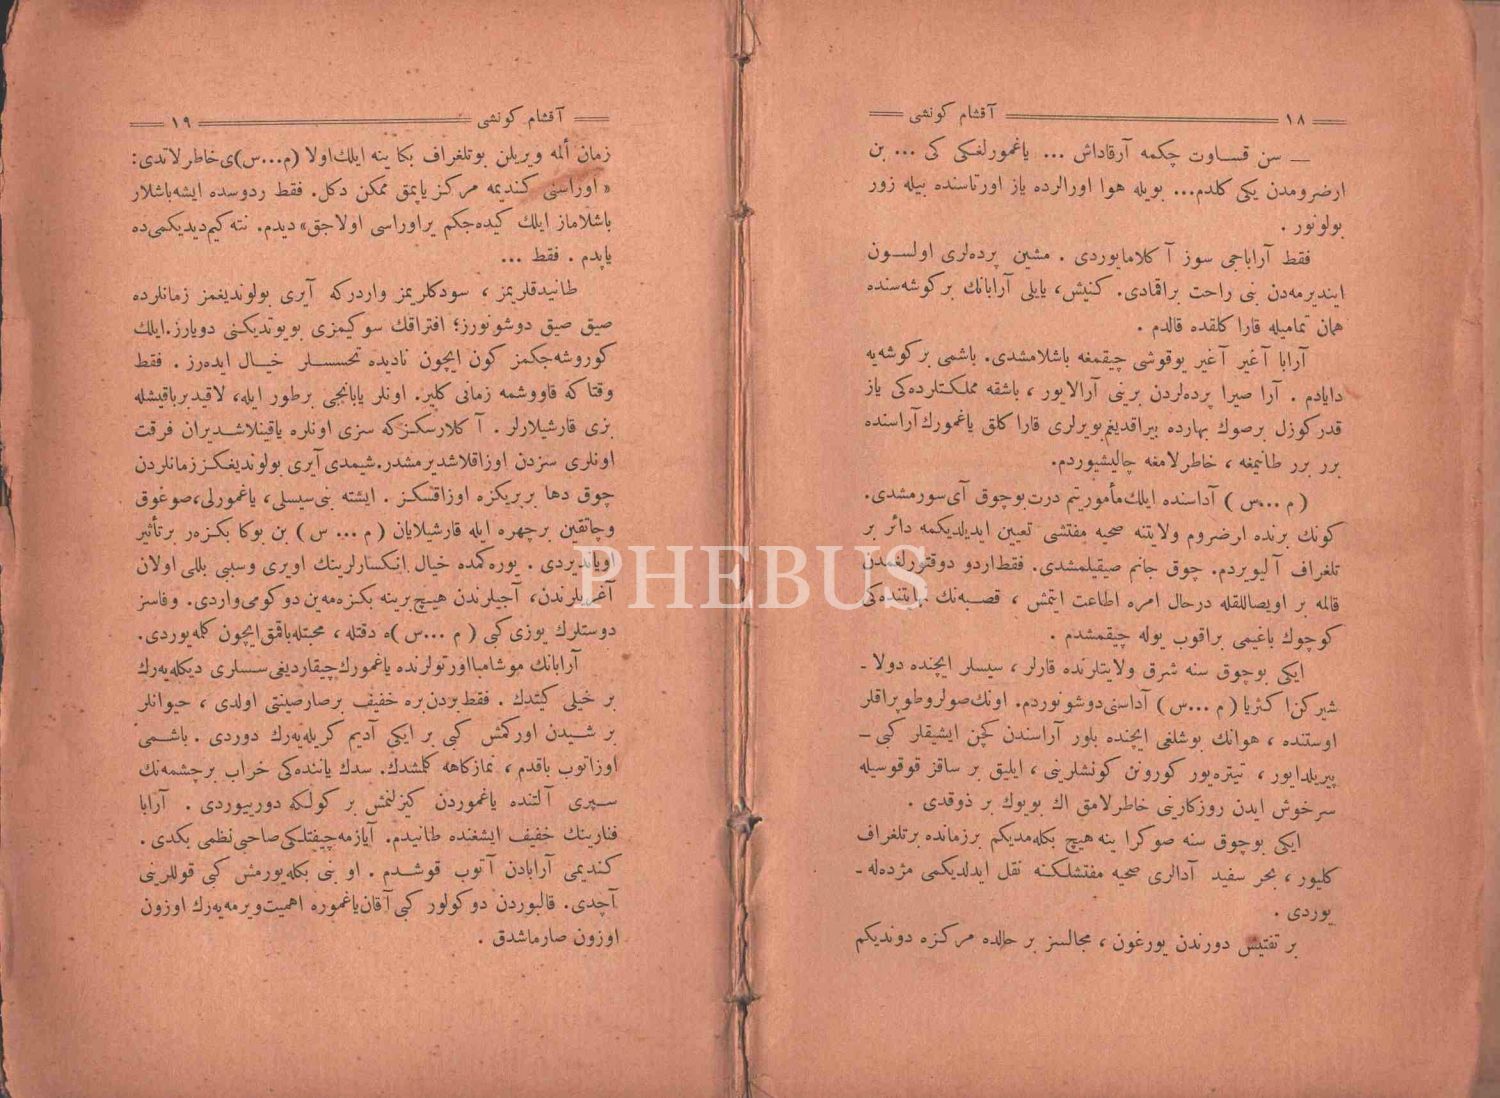 ١٨ آقشام كونشی
— سن قساوت چكمه آرقاداش ... یاغمورلغكی كی ... بن
ارضرومدن یكی كلدم... بویله هوا اورالرده یاز اورتاسنده بیله زور
بولونور .
فقط آراباجی سوز آكلامایوردی . مشین پرده‌لری اولسون
ایندیرمه‌دن بنی راحت براقمادی. كنیش، یایلی آرابانك بركوشه‌سنده
همان تمامیله قارا كلقده قالدم .
آرابا آغیر آغیر یوقوشی چیقمغه باشلامشدی. باشمی بر كوشه‌یه
دایادم . آرا صیرا پرده‌لردن برینی آرالایور ، باشقه مملكتلرده‌كی یاز
قدركوزل برصوك بهارده بیراقدیغم‌بویرلری قارا كلق یاغمورك‌آراسنده
برر برر طانیمغه ، خاطرلامغه چالیشیوردم.
( م ...س ) آداسنده ایلك‌مأموریتم درت‌بوچوق آی‌سورمشدی.
كونك برنده ارضروم ولایتنه صحیه مفتشی تعیین ایدیلدیكمه دائر بر
تلغراف آلیوردم. چوق جانم صیقیلمشدی. فقط‌اردو دوقتورلغمدن
قالمه بر اویصاللقله درحال امره اطاعت ایتمش ، قصبه‌نك نهایتنده‌كی
كوچوك باغیمی براقوب یوله چیقمشدم .
ایكی بوچوق سنه شرق ولایتلرنده قارلر ، سیسلر ایچنده دولا ـ
شیركن‌اكثریا ( م ...س ) آداسنی‌دوشونوردم. اونك‌صولروطوپراقلر
اوستنده ، هوانك بوشلغی ایچنده بلور آراسندن كچن ایشیقلر كبی ـ
پیریلدایور ، تیتره‌یور كورونن كونشلرینی ، ایلیق بر ساقز قوقوسیله
سرخوش ایدن روزكارینی خاطرلامق اك بویوك بر ذوقدی .
ایكی بوچوق سنه صوكرا ینه هیچ بكله‌مدیكم برزمانده برتلغراف
كلیور ، بحر سفید آدالری صحیه مفتشلكنه نقل ایدلدیكمی مژده‌له ـ
یوردی .
بر تفتیش دورندن یورغون ، مجالسز بر حالده مركزه دوندیكم
آقشام كونشی ١٩
زمان ألمه ویریلن بوتلغراف بكا ینه ایلك‌اولا (م...س)ی‌خاطرلاتدی:
« اوراسنی كندیمه مركز یاپمق ممكن دكل. فقط ردوسده ایشه‌باشلار
باشلاماز ایلك كیده‌جكم یراوراسی اولاجق» دیدم. نته‌كیم‌دیدیكمی‌ده
یاپدم . فقط ...
طانیدقلریمز ، سودكلریمز واردركه آیری بولوندیغمز زمانلرده
صیق صیق دوشونورز؛ افتراقك سوكیمزی بویوتدیكنی دویارز.ایلك
كوروشه‌جكمز كون ایچون نادیده تحسسلر خیال ایده‌رز . فقط
وقتاكه قاووشمه زمانی كلیر. اونلر یابانجی برطور ایله، لاقیدبرباقیشله
بزی قارشیلارلر . آكلارسكزكه سزی اونلره یاقینلاشدیران فرقت
اونلری سزدن اوزاقلاشدیرمشدر.شیمدی‌آیری بولوندیغكززمانلردن
چوق دها بربریكزه اوزاقسكز . ایشته بنی‌سیسلی، یاغمورلی،صوغوق
وچاتقین برچهره ایله قارشیلایان ( م ... س ) بن بوكا بكزه‌ر برتأثیر
اویاندیردی . یوره‌كمده خیال انكسارلرینك اویری وسببی بللی اولان
آغریلرندن، آجیلرندن هیچ‌برینه بكزه‌مه‌ین دو كومی‌واردی. وفاسز
دوستلرك یوزی‌كبی ( م ...س )ه دقتله ، محبتله‌باقمق‌ایچون كلمه‌یوردی.
آرابانك موشامبااورتولرنده یاغمورك‌چیقاردیغی‌سسلری دیكله‌یه‌رك
بر خیلی كیتدك . فقط بردن‌بره خفیف برصارصینتی اولدی ، حیوانلر
بر شیدن اوركمش كبی بر ایكی آدیم كریله‌یه‌رك دوردی . باشمی
اوزاتوب باقدم ، نمازكاهه كلمشدك. سدك یاننده‌كی خراب برچشمه‌نك
سپری آلتنده یاغموردن كیزلنمش بر كولكه دورییوردی . آرابا
فنارینك خفیف ایشغنده طانیدم. آیازمه‌چیفتلكی‌صاحبی‌نظمی بكدی .
كندیمی آرابادن آتوب قوشدم . او بنی بكله‌یورمش كبی قوللرینی
آچدی. قالبوردن دوكولور كبی‌آقان‌یاغموره اهمیت‌ویرمه‌یه‌رك اوزون
اوزون صارماشدق .
PHEBUS